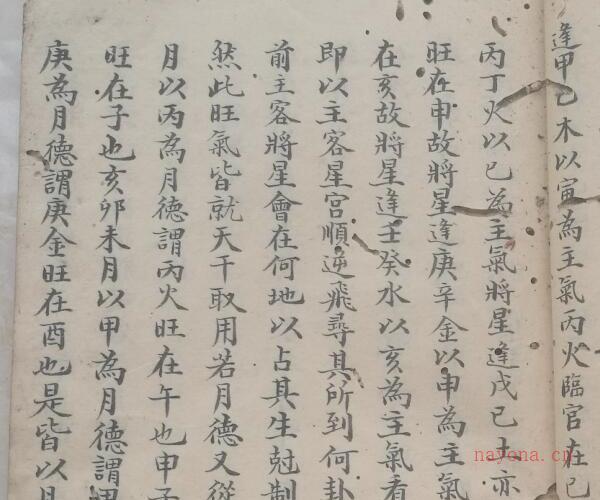 逢甲乙木以寅為主氣丙火臨官在巳
丙丁火以巳為主氣將星逢戊己土亦
旺在申故將星逢庚辛金以申為主氣
在亥故將星逢壬癸水以亥為主氣看
即以主客星宮順逆飛尋其所到何卦
前主客將星會在何地以占其生尅制
然此旺氣皆就天干取用若月德又從
月以丙為月德謂丙火旺在午也申子
旺在子也亥卯未月以甲為月德謂甲
庚為月德謂庚金旺在酉也是皆以月
nayona.cn